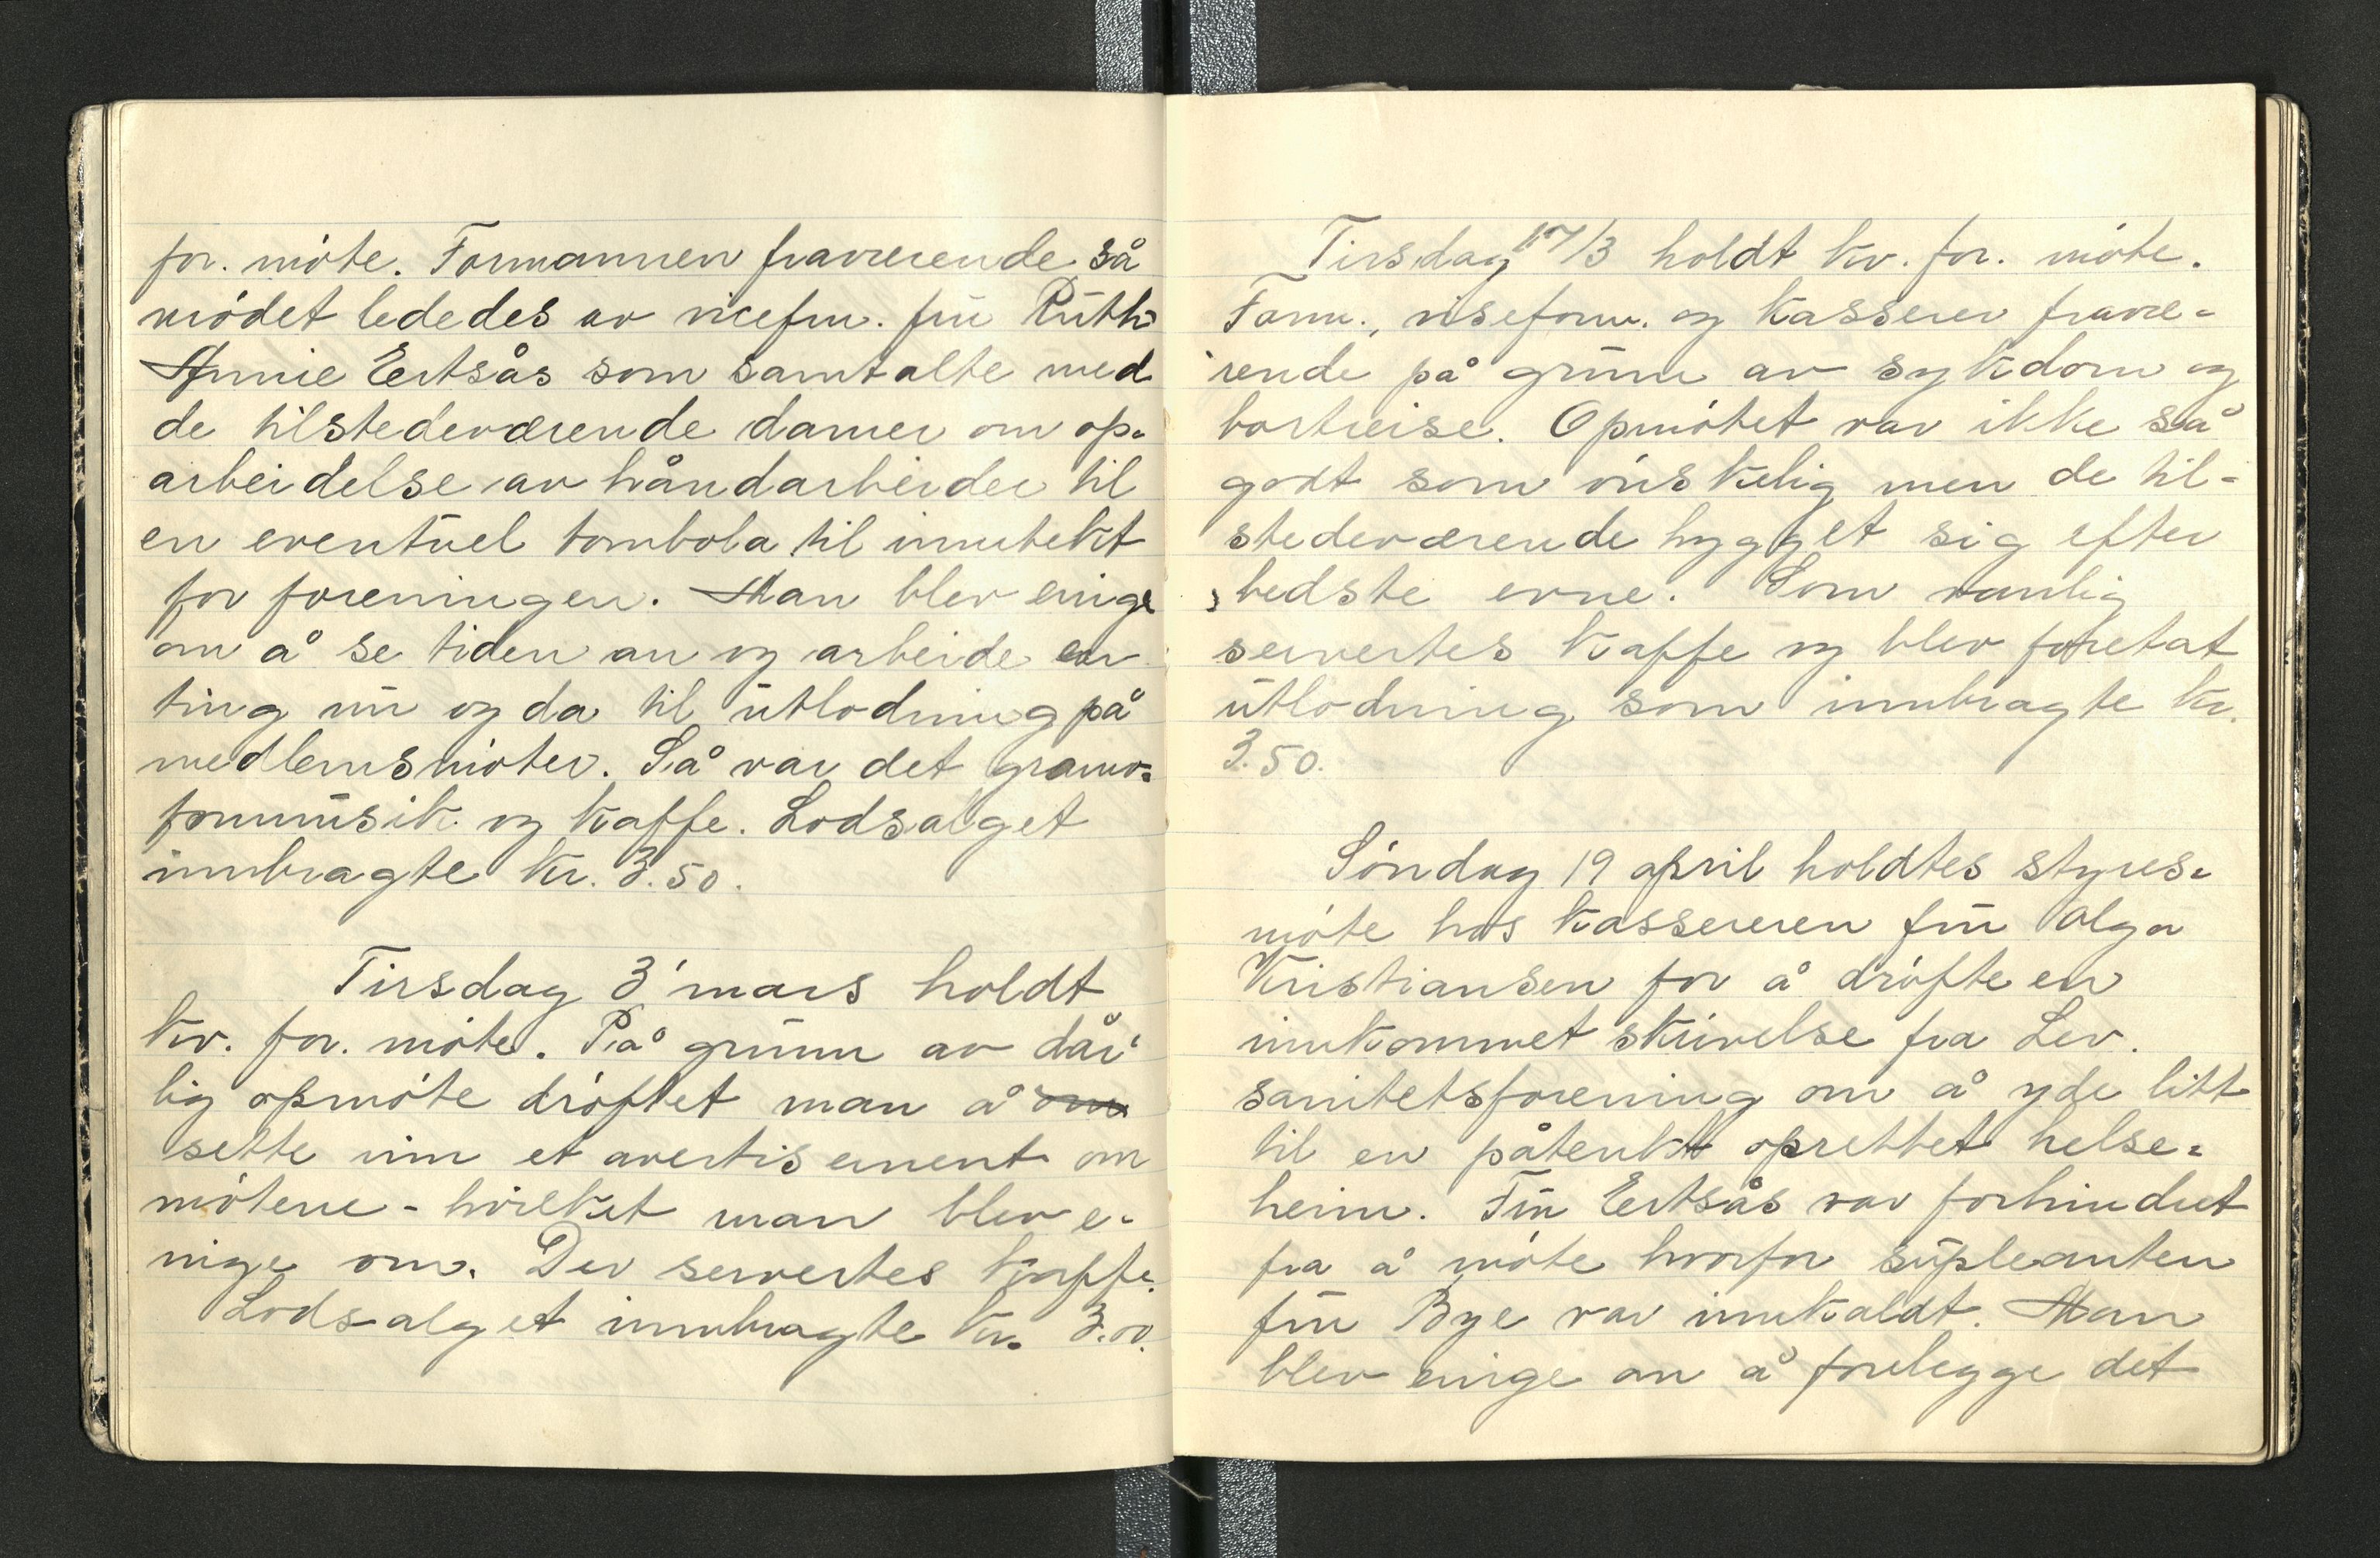 for. møte. Formannen fraværende så
mødet lededes av vicefm. fru Ruth
Annie Eertsås som samtalte med
de tilstedeværende damer om op-
arbeidelse av håndarbeider til
en eventuel tombola til inntekt
for foreningen. Man blev enige
om å se tiden an og arbeide en
ting nu og da til utlodning på
medlemsmøter. Så var det gramo-
fonmusik og kaffe. Lodsalget
innbragte kr. 3.50.
Tirsdag 3' mars holdt
kv. for. møte. På grunn av dår-
lig opmøte drøftet man å om
sette inn et avertisement om
møtene - hvilket man blev e-
nige om. Der servertes kaffe.
Lodsalget innbragte kr. 3.00.
Tirsdag 17/3 holdt kv. for. møte.
Form., viseform. og kasserer fravæ-
rende på grunn av sykdom og
bortreise. Opmøtet var ikke så
godt som ønskelig men de til-
stedeværende hygget sig efter
bedste evne. Som vanlig
servertes kaffe og blev foretat
utlodning som innbragte kr.
3.50.
Søndag 19 april holdtes styres-
møte hos kassereren fru Olga
Kristiansen for å drøfte en
innkommet skrivelse fra Lev.
sanitetsforening om å yde litt
til en påtenkt oprettet helse-
heim. Fru Eertsås var forhindret
fra å møte hvorfor supleanten
fru Bye var innkaldt. Man
blev enige om å forelegge det